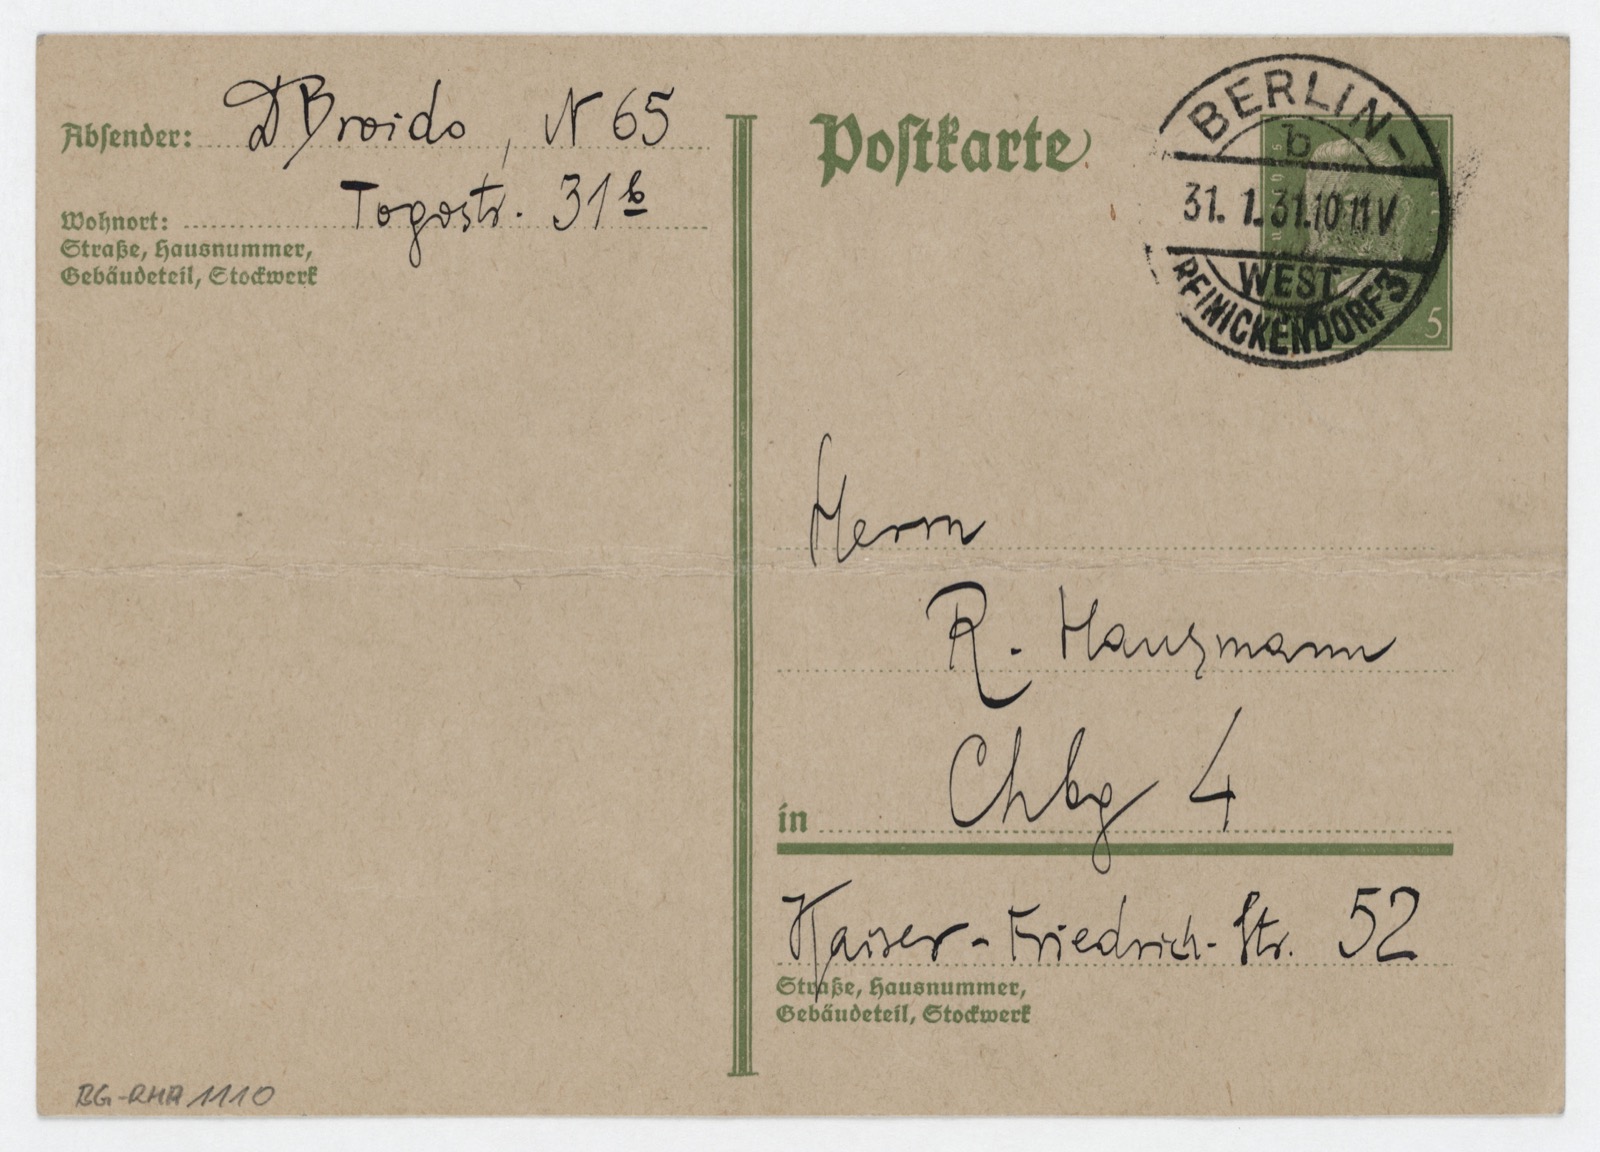 Absender: DBroido, N 65
Wohnort: Togostr. 31b
Straße, Hausnummer,
Gebäudeteil, Stockwerk
Postkarte
BERLIN-
b
31. 1. 31. 10-11 V
WEST
REINICKENDORF 3
5
Herrn
R. Hausmann
in Chbg 4
Kaiser-Friedrich-Str. 52
Straße, Hausnummer,
Gebäudeteil, Stockwerk
BG-RHA 1110